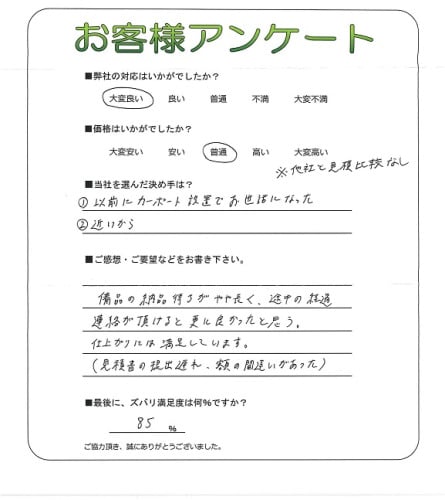 お客様アンケート
■弊社の対応はいかがでしたか？
大変良い 良い 普通 不満 大変不満
■価格はいかがでしたか？
大変安い 安い 普通 高い 大変高い
※他社と見積比較なし
■当社を選んだ決め手は？
①以前にカーポート設置でお世話になった
②近いから
■ご感想・ご要望などをお書き下さい。
備品の納品待ちがやや長く、途中の経過
連絡が頂けると更に良かったと思う。
仕上がりには満足しています。
(見積書の提出遅れ、額の間違いがあった)
■最後に、ズバリ満足度は何%ですか？
85 %
ご協力頂き、誠にありがとうございました。